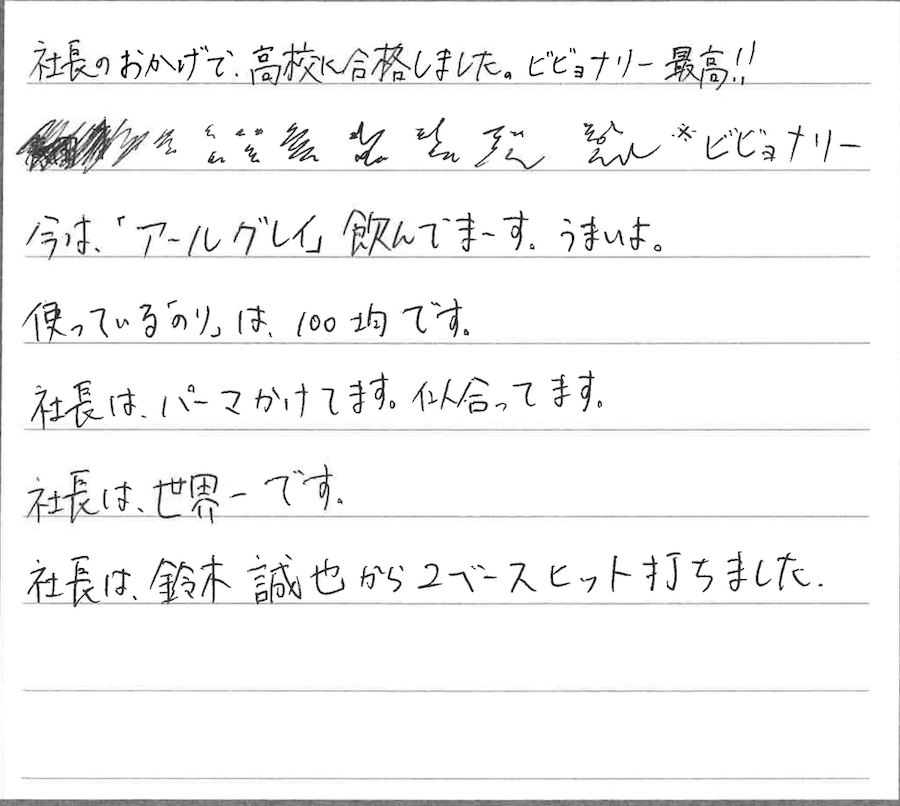 社長のおかげで、高校に合格しました。ビビョナリー最高!!
※ビビョナリー
今は、「アールグレイ」飲んでまーす。うまいよ。
使っている「のり」は、100均です。
社長は、パーマかけてます。似合ってます。
社長は、世界一です。
社長は、鈴木誠也から2ベースヒット打ちました.